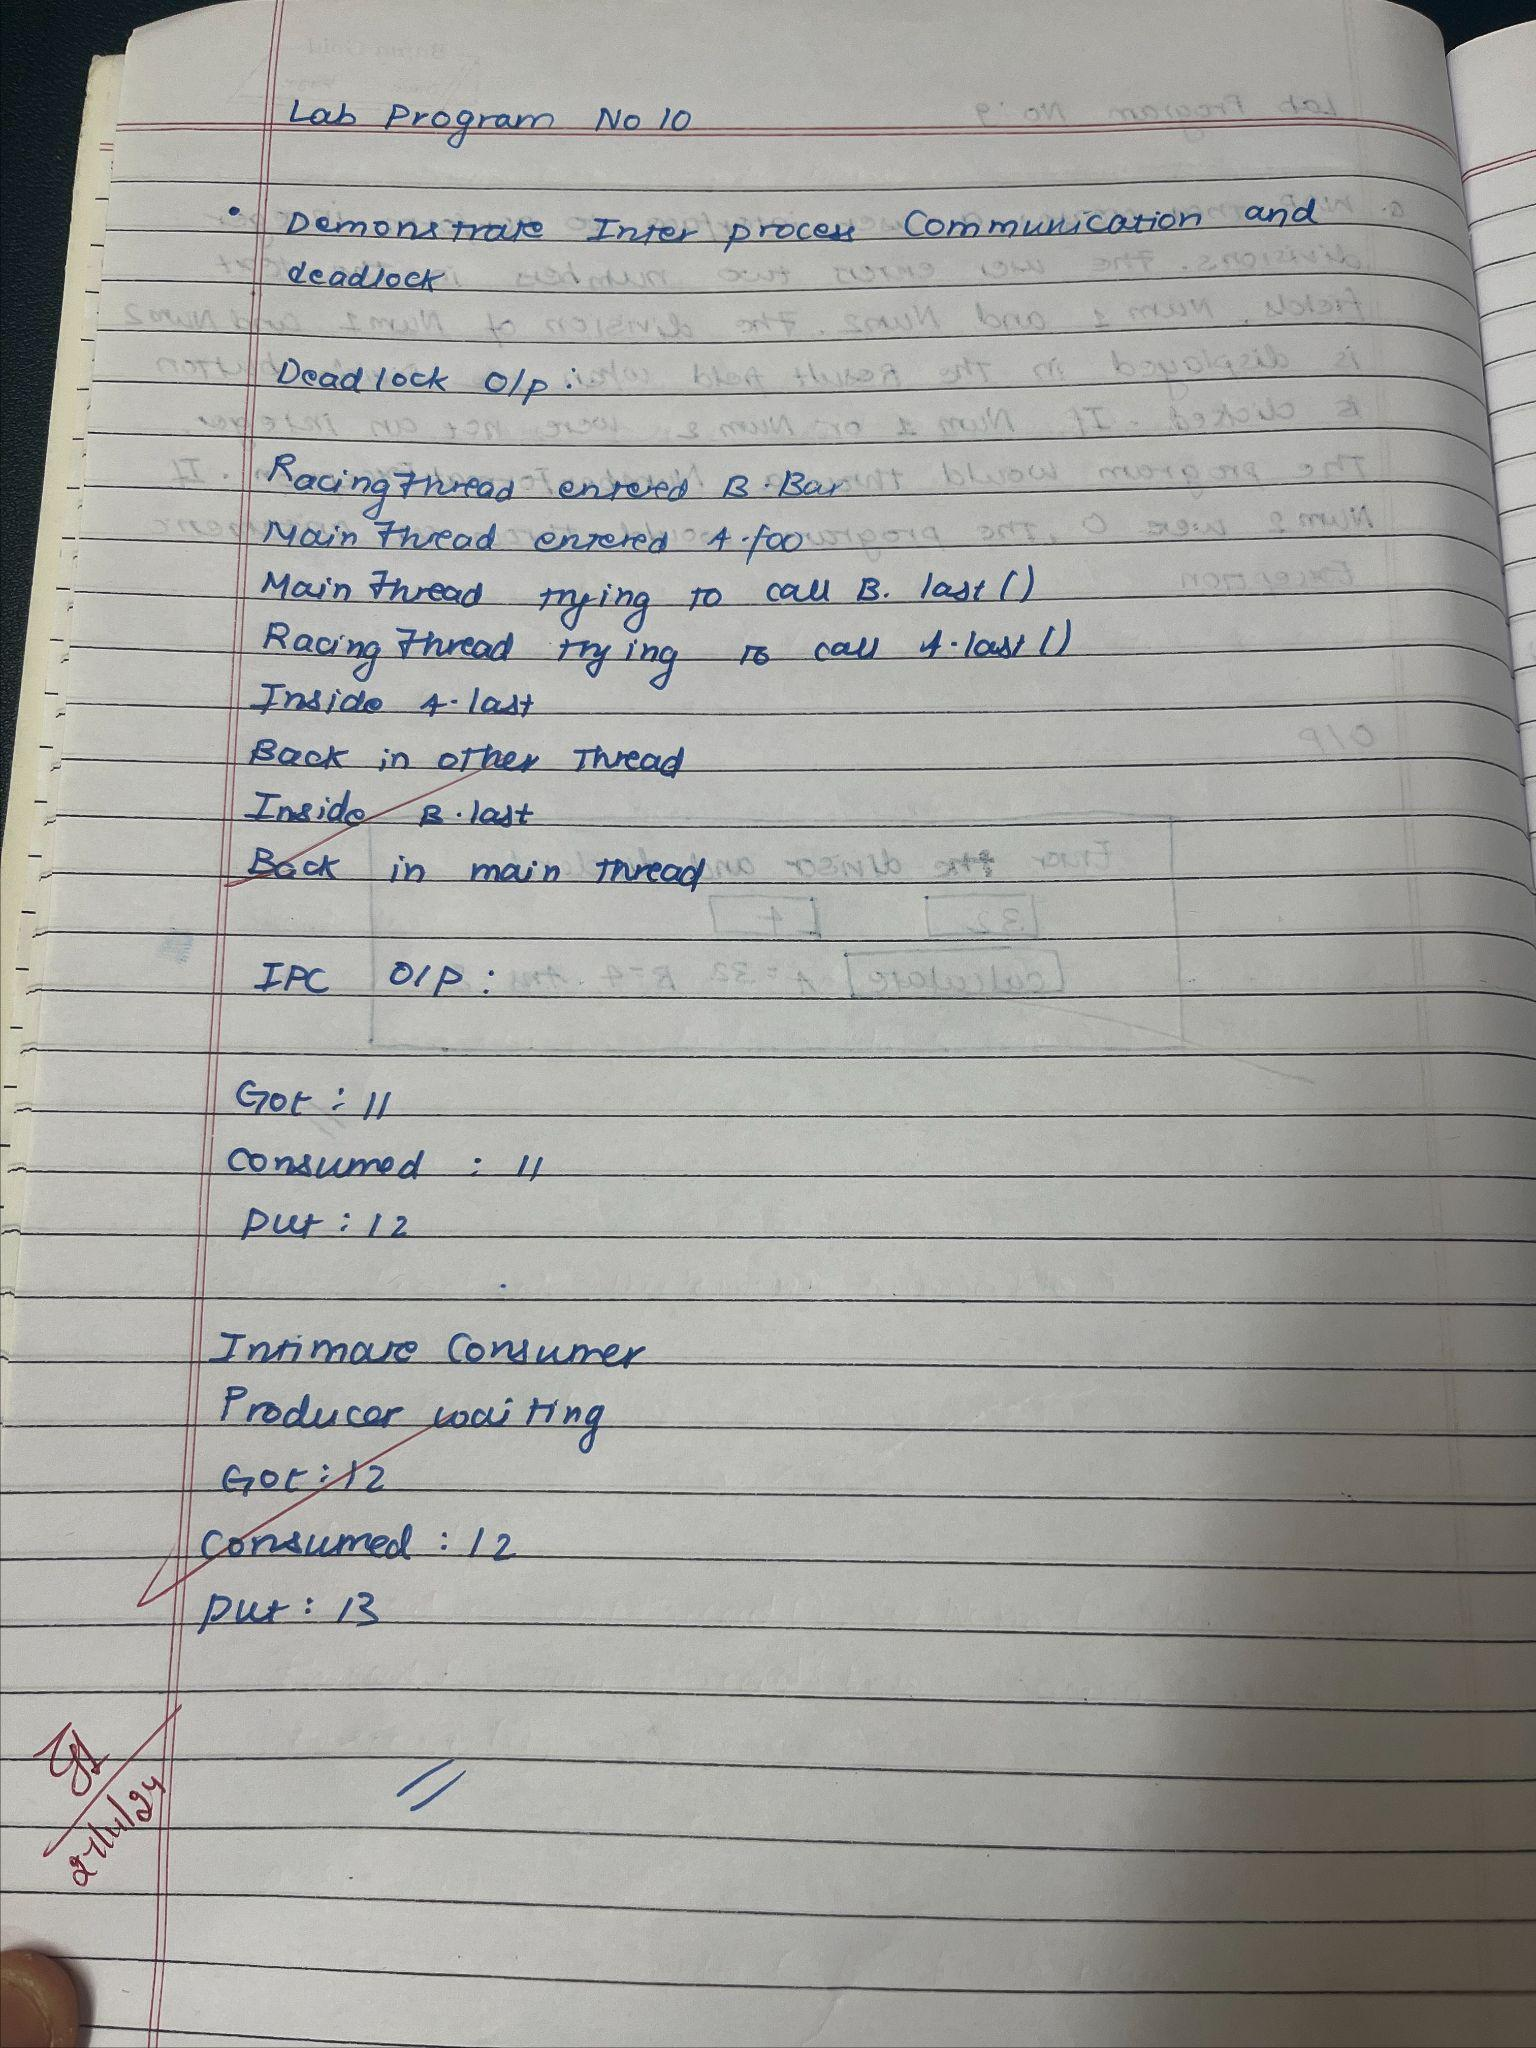 Lab Program No 10
• Demonstrate Inter process Communication and
deadlock
Deadlock O/p :
Racing Thread entered B.Bar
Main Thread entered A.foo
Main Thread trying to call B.last()
Racing Thread trying to call A.last()
Inside A.last
Back in other Thread
Inside B.last
Back in main thread
IPC O/P :
Got : 11
Consumed : 11
Put : 12
Intimate Consumer
Producer waiting
Got : 12
Consumed : 12
Put : 13